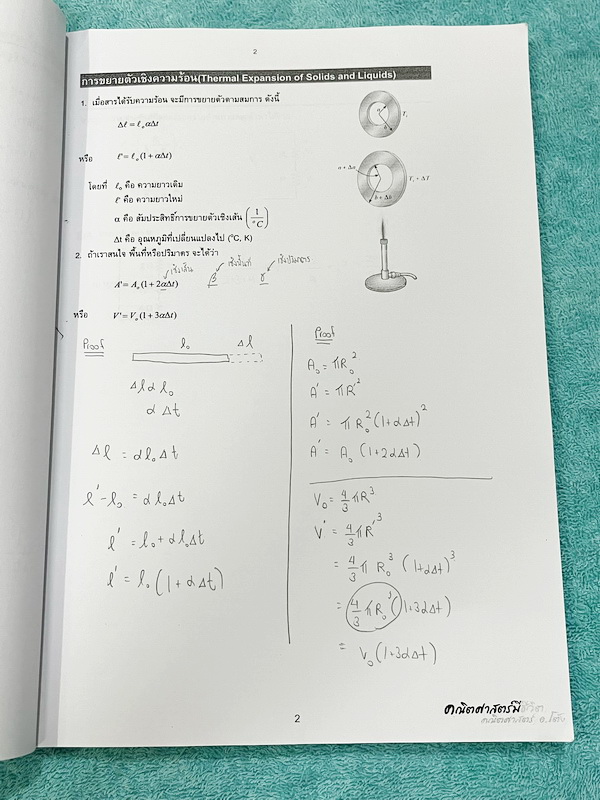 2
การขยายตัวเชิงความร้อน(Thermal Expansion of Solids and Liquids)
1. เมื่อสารได้รับความร้อน จะมีการขยายตัวตามสมการ ดังนี้
Δℓ = ℓ₀αΔt
หรือ ℓ' = ℓ₀(1 + αΔt)
โดยที่ ℓ₀ คือ ความยาวเดิม
ℓ' คือ ความยาวใหม่
α คือ สัมประสิทธิ์การขยายตัวเชิงเส้น (1/°C)
Δt คือ อุณหภูมิที่เปลี่ยนแปลงไป (°C, K)
a
b
Tᵢ
a + Δa
b + Δb
Tᵢ + ΔT
2. ถ้าเราสนใจ พื้นที่หรือปริมาตร จะได้ว่า
เชิงเส้น β เชิงพื้นที่ γ เชิงปริมาตร
A' = A₀(1 + 2αΔt)
หรือ V' = V₀(1 + 3αΔt)
Proof
ℓ₀ Δℓ
Δℓ α ℓ₀
α Δt
Δℓ = αℓ₀Δt
ℓ' - ℓ₀ = αℓ₀Δt
ℓ' = ℓ₀ + αℓ₀Δt
ℓ' = ℓ₀(1 + αΔt)
Proof
A₀ = πR₀²
A' = πR'²
A' = πR₀²(1+αΔt)²
A' = A₀(1+2αΔt)
V₀ = 4/3 πR³
V' = 4/3 πR'³
= 4/3 π R₀³ (1+αΔt)³
= 4/3 πR₀³ (1+3αΔt)
= V₀(1+3αΔt)
2
คณิตศาสตร์มีชีวิต
คณิตศาสตร์ อ.โต้ง